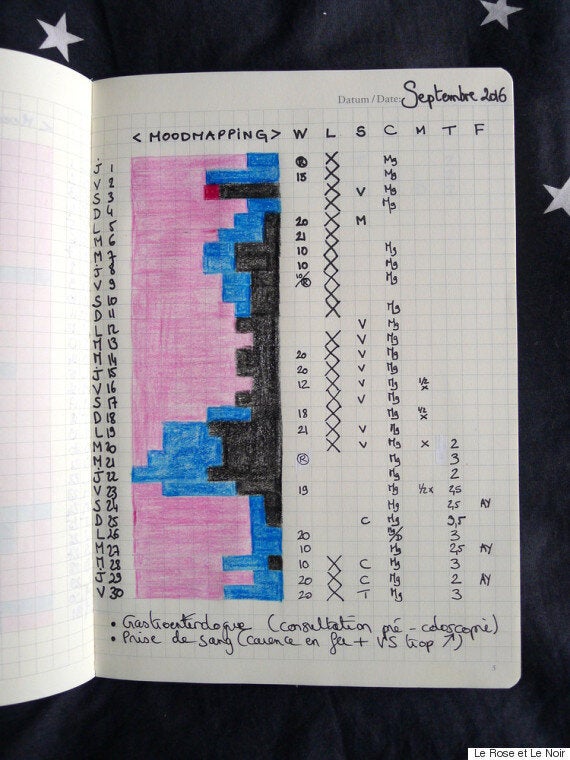 Datum / Date: Septembre 2016
< MOODMAPPING > W L S C M T F
J 1 ® X Mg
V 2 15 X Mg
S 3 X V Mg
D 4 X Mg
L 5 20 X M
M 6 21 X
M 7 10 X Mg
J 8 10 X Mg
V 9 10/® X Mg
S 10 X
D 11 X Mg
L 12 V Mg
M 13 X V Mg
M 14 20 X V Mg
J 15 20 X V Mg
V 16 12 X V Mg 1/2 x
S 17 X V Mg
D 18 18 X Mg 1/2 x
L 19 21 X V Mg
M 20 X V Mg x 2
M 21 ® Mg 3
J 22 Mg 2
V 23 19 Mg 1/2 x 2,5
S 24 Mg 2,5 AY
D 25 C Mg 3,5
L 26 20 3
M 27 10 Mg 2,5 AY
M 28 10 X C Mg 3
J 29 20 X C Mg 2 AY
V 30 20 X T Mg 3
• Gastroentérologue (consultation pré-coloscopie)
• Prise de sang (carence en fer + VS trop ↗)
5
Le Rose et Le Noir